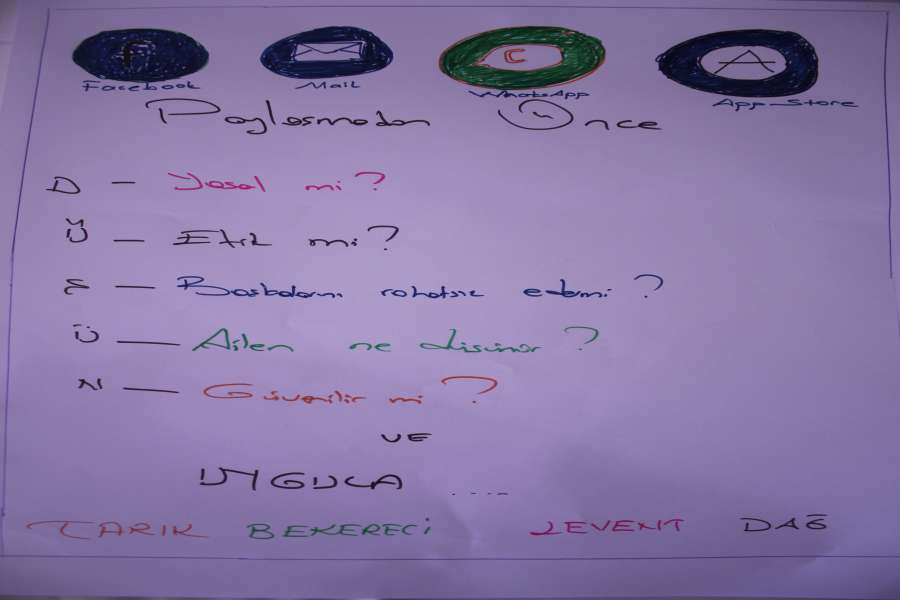 f C A
Facebook Mail WhatsApp App-Store
Paylaşmadan Önce
D - Yasal mi?
Ü - Etik mi?
Ş - Başkalarını rahatsız edermi?
Ü - Ailen ne düşünür?
N - Güvenilir mi?
VE
UYGULA ....
TARIK BEKERECİ LEVENT DAĞ